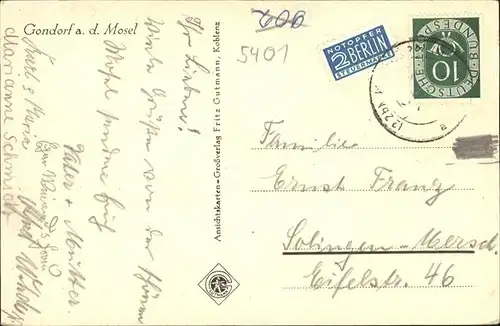 Gondorf a. d. Mosel
600
5401
NOTOPFER
2 BERLIN
STEUERMARKE
DEUTSCHE BUNDESPOST
10
Ansichtskarten-Großverlag Fritz Gutmann, Koblenz
Ihr Lieben!
Viele Grüße von der schönen
Mosel senden Euch
Vater + Mutter.
Karl & Maria
Marianne Schmidt
Familie
Ernst Franz
Solingen-Mersch.
Eifelstr. 46